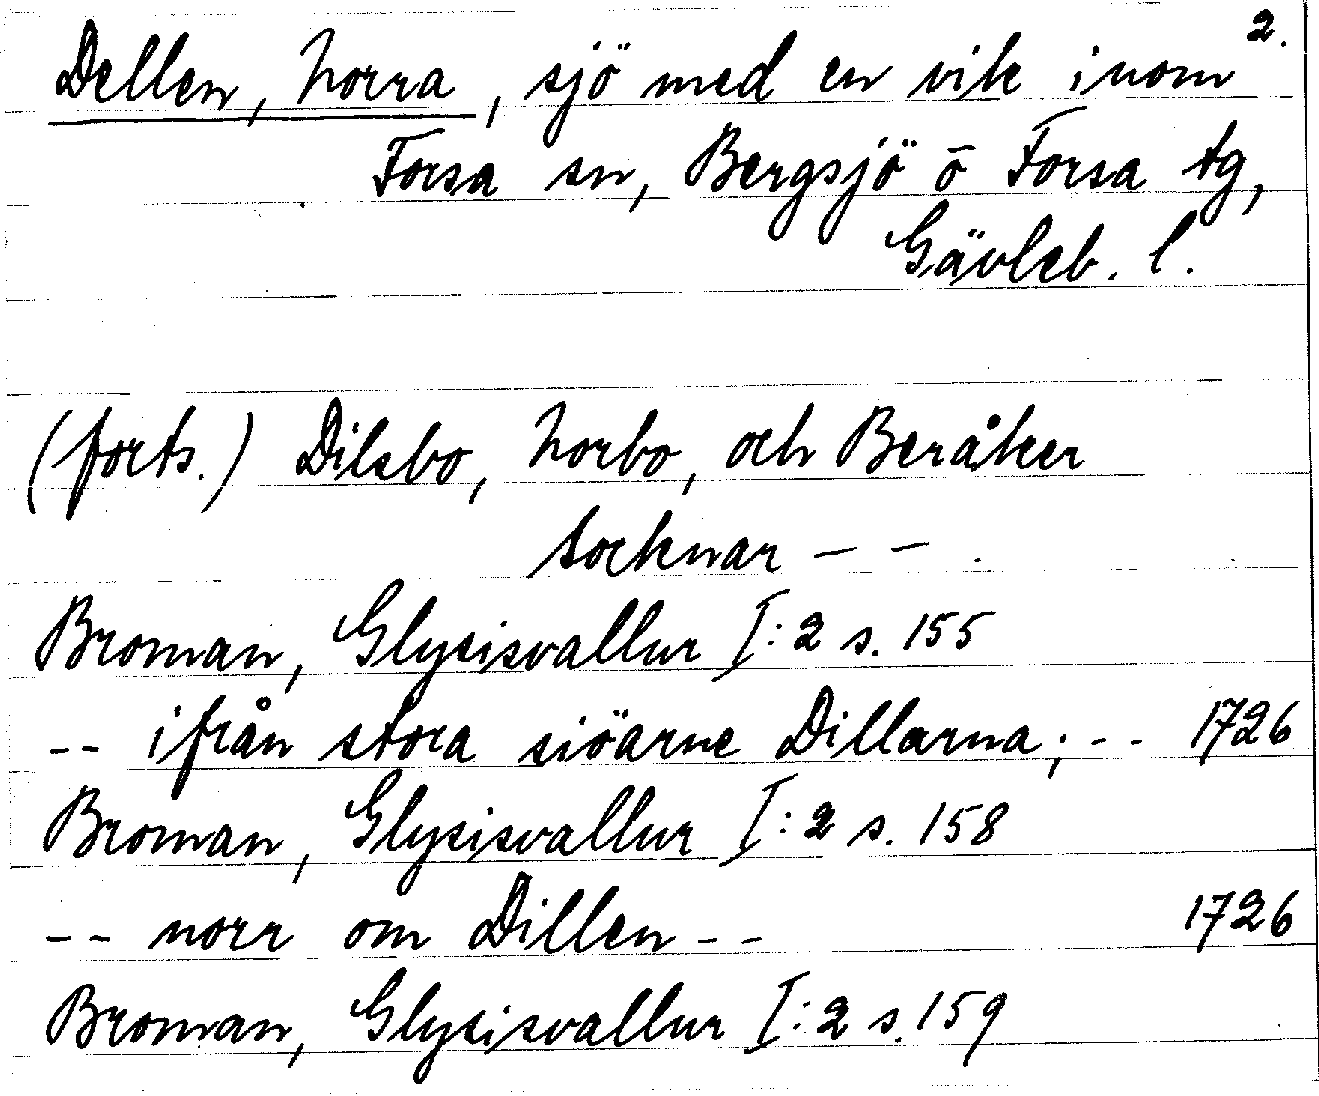 2.
Dellen, Norra, sjö med en vik inom
Forsa sn, Bergsjö o Forsa tg,
Gävleb. l.
(forts.) Dilsbo, Norbo, och Beråker
socknar – – .
Broman, Glysisvallur I:2 s. 155
-- ifrån stora siöarne Dillarna; -- 1726
Broman, Glysisvallur I:2 s. 158
-- norr om Dillen -- 1726
Broman, Glysisvallur I:2 s. 159